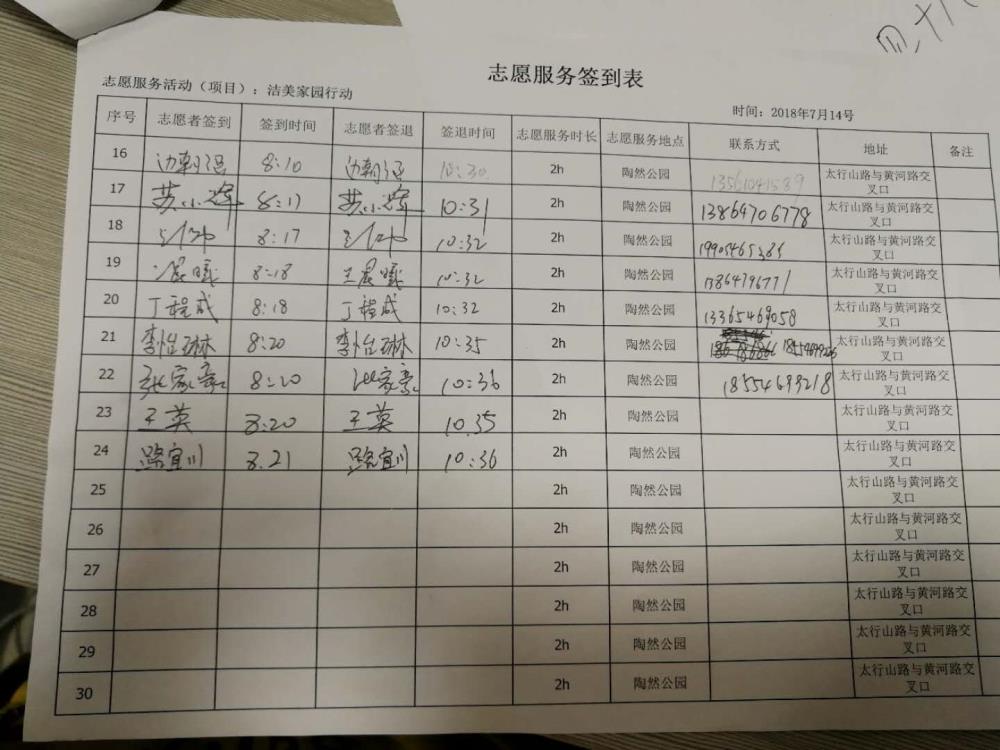 四,十八
志愿服务签到表
志愿服务活动（项目）：洁美家园行动
时间：2018年7月14号
序号 志愿者签到 签到时间 志愿者签退 签退时间 志愿服务时长 志愿服务地点 联系方式 地址 备注
16 边朝 8:10 边朝 10:30 2h 陶然公园 太行山路与黄河路交
叉口
17 苏小辉 8:17 苏小辉 10:31 2h 陶然公园 13864706778 太行山路与黄河路交
叉口
18 8:17 10:32 2h 陶然公园 太行山路与黄河路交
叉口
19 8:18 王晨曦 10:32 2h 陶然公园 13864796771 太行山路与黄河路交
叉口
20 丁程成 8:18 丁程成 10:32 2h 陶然公园 13365469058 太行山路与黄河路交
叉口
21 李怡琳 8:20 李怡琳 10:35 2h 陶然公园 太行山路与黄河路交
叉口
22 张家豪 8:20 张家豪 10:36 2h 陶然公园 18554699218 太行山路与黄河路交
叉口
23 王英 8:20 王英 10.35 2h 陶然公园 太行山路与黄河路交
叉口
24 路宜川 8.21 路宜川 10:36 2h 陶然公园 太行山路与黄河路交
叉口
25 2h 陶然公园 太行山路与黄河路交
叉口
26 2h 陶然公园 太行山路与黄河路交
叉口
27 2h 陶然公园 太行山路与黄河路交
叉口
28 2h 陶然公园 太行山路与黄河路交
叉口
29 2h 陶然公园 太行山路与黄河路交
叉口
30 2h 陶然公园 太行山路与黄河路交
叉口